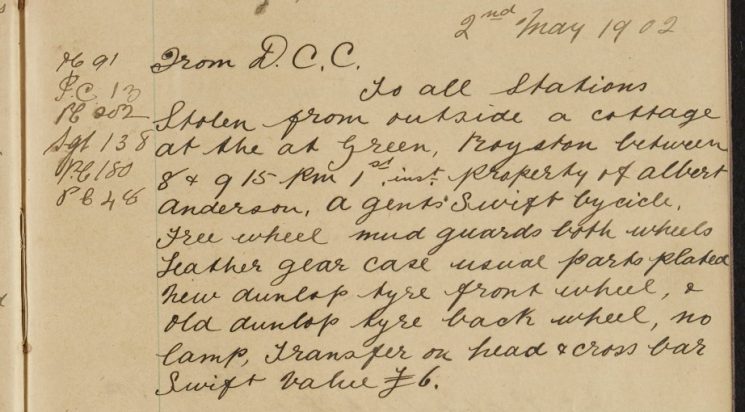 2nd May 1902
Pc 91
P.C. 13
Pc 202
Sgt 138
Pc 180
Pc 48
From D.C.C.
To all Stations
Stolen from outside a cottage
at the at Green, Royston between
8 & 9 15 pm 1st. inst. property of albert
anderson, a gents Swift bycicle,
Free wheel mud guards both wheels
Leather gear case usual parts plated
new dunlop tyre front wheel, &
old dunlop tyre back wheel, no
lamp, Transfer on head & cross bar
Swift value £6.